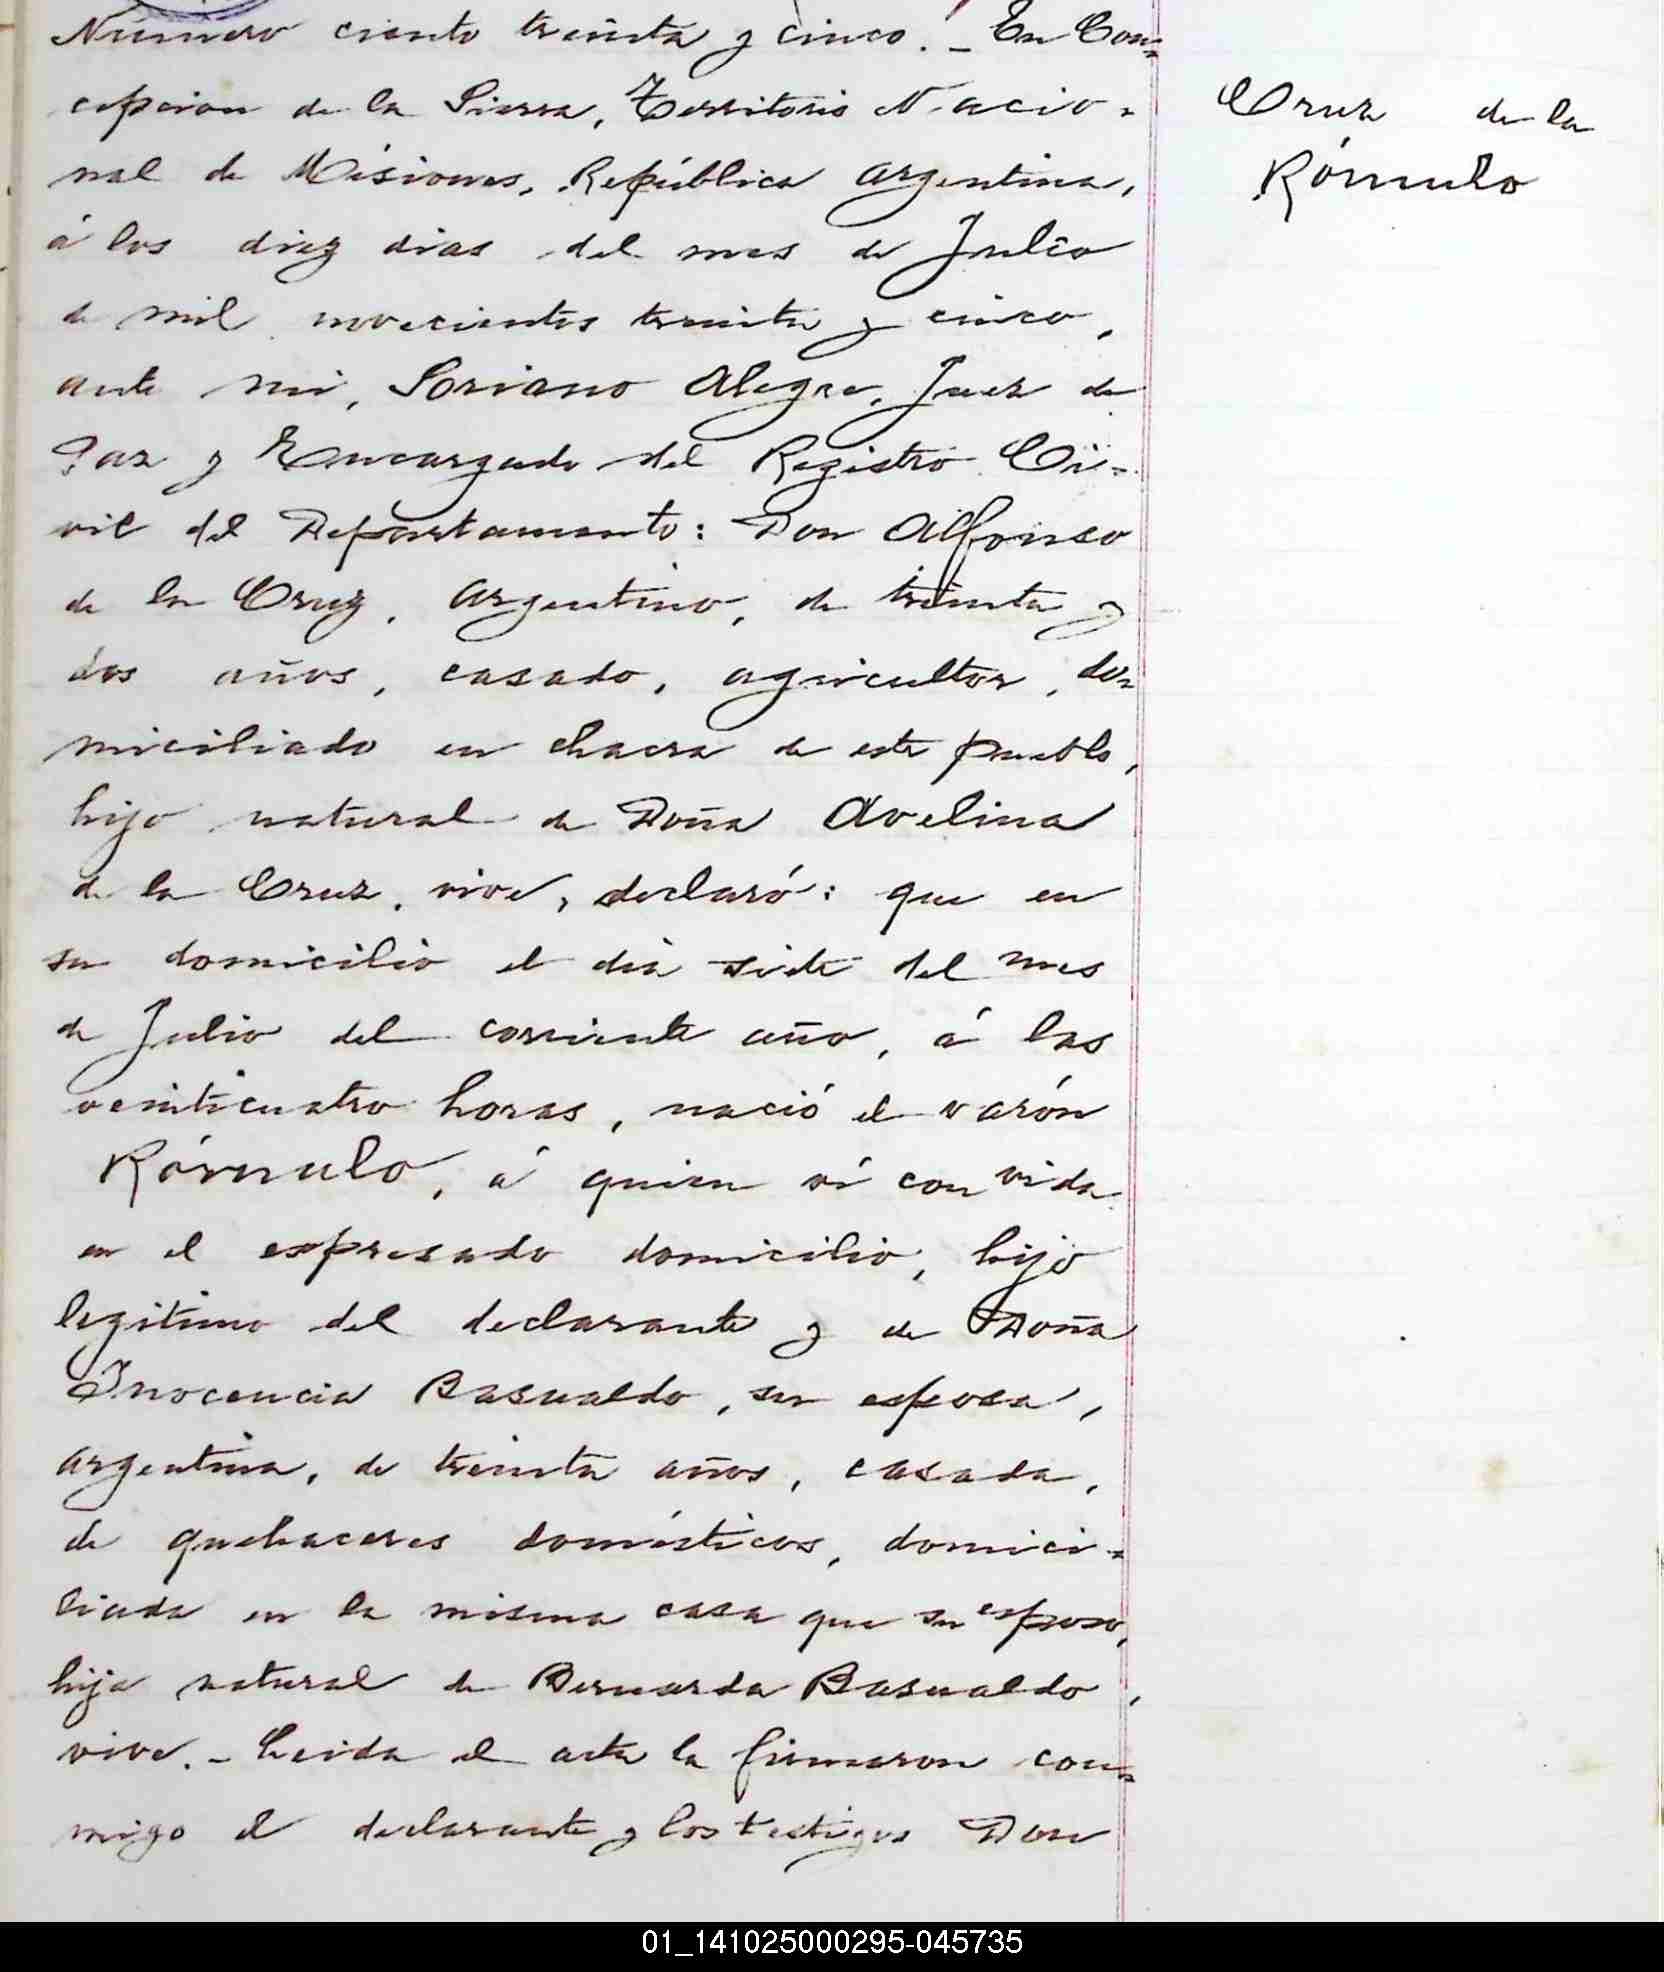 Número ciento treinta y cinco. – En Con-
cepcion de la Sierra, Territorio Nacio-
nal de Misiones, República Argentina,
á los diez dias del mes de Julio
de mil novecientos treinta y cinco,
ante mi, Soriano Alegre, Juez de
Paz y Encargado del Registro Ci-
vil del Departamento: Don Alfonso
de la Cruz, argentino, de treinta y
dos años, casado, agricultor, do-
miciliado en chacra de este pueblo,
hijo natural de Doña Avelina
de la Cruz, vive, declaró: que en
su domicilio el dia siete del mes
de Julio del corriente año, á las
veinticuatro horas, nació el varón
Rómulo, á quien ví con vida
en el expresado domicilio, hijo
legitimo del declarante y de Doña
Inocencia Basualdo, su esposa,
argentina, de treinta años, casada,
de quehaceres domésticos, domici-
liada en la misma casa que su esposo,
hija natural de Bernarda Basualdo,
vive. – Leida el acta la firmaron con-
migo el declarante y los testigos Don
Cruz de la
Rómulo
01_141025000295-045735